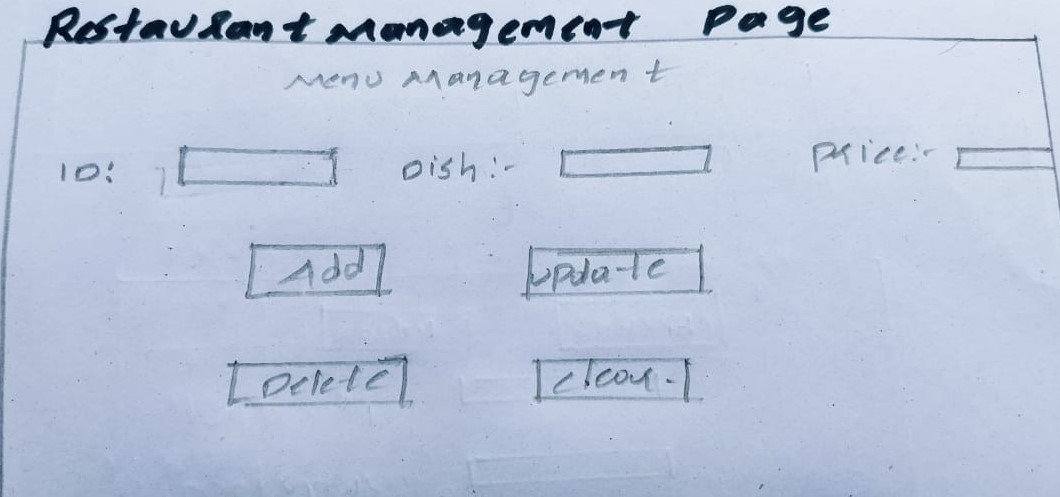 Restaurant Management Page
Menu Management
ID: Dish:- Price:-
Add Update
Delete Clear.